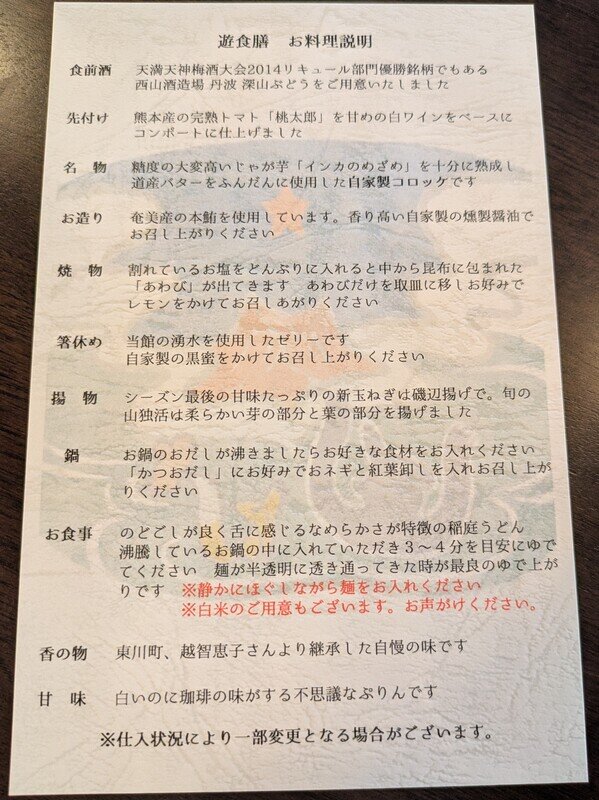 遊食膳　お料理説明
食前酒　天満天神梅酒大会2014リキュール部門優勝銘柄でもある
西山酒造場 丹波 深山ぶどうをご用意いたしました
先付け　熊本産の完熟トマト「桃太郎」を甘めの白ワインをベースに
コンポートに仕上げました
名　物　糖度の大変高いじゃが芋「インカのめざめ」を十分に熟成し
道産バターをふんだんに使用した自家製コロッケです
お造り　奄美産の本鮪を使用しています。香り高い自家製の燻製醤油で
お召し上がりください
焼　物　割れているお塩をどんぶりに入れると中から昆布に包まれた
「あわび」が出てきます　あわびだけを取皿に移しお好みで
レモンをかけてお召しあがりください
箸休め　当館の湧水を使用したゼリーです
自家製の黒蜜をかけてお召し上がりください
揚　物　シーズン最後の甘味たっぷりの新玉ねぎは磯辺揚げで。旬の
山独活は柔らかい芽の部分と葉の部分を揚げました
鍋　お鍋のおだしが沸きましたらお好きな食材をお入れください
「かつおだし」にお好みでおネギと紅葉卸しを入れお召し上が
りください
お食事　のどごしが良く舌に感じるなめらかさが特徴の稲庭うどん
沸騰しているお鍋の中に入れていただき３～４分を目安にゆで
てください　麺が半透明に透き通ってきた時が最良のゆで上が
りです　※静かにほぐしながら麺をお入れください
※白米のご用意もございます。お声がけください。
香の物　東川町、越智恵子さんより継承した自慢の味です
甘　味　白いのに珈琲の味がする不思議なぷりんです
※仕入状況により一部変更となる場合がございます。